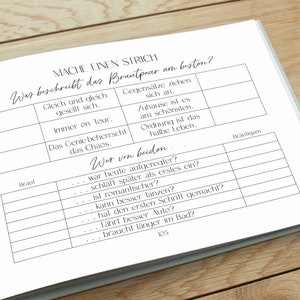 MACHE EINEN STRICH
Was beschreibt das Brautpaar am besten?
Gleich und gleich
gesellt sich.
Gegensätze ziehen
sich an.
Immer on Tour.
Zuhause ist es
am schönsten.
Das Genie beherrscht
das Chaos.
Ordnung ist das
halbe Leben.
Wer von beiden . . .
Braut
Bräutigam
. . . war heute aufgeregter?
. . . schläft später als erstes ein?
. . . ist romantischer?
. . . kann besser tanzen?
. . . hat den ersten Schritt gemacht?
. . . fährt besser Auto?
. . . braucht länger im Bad?